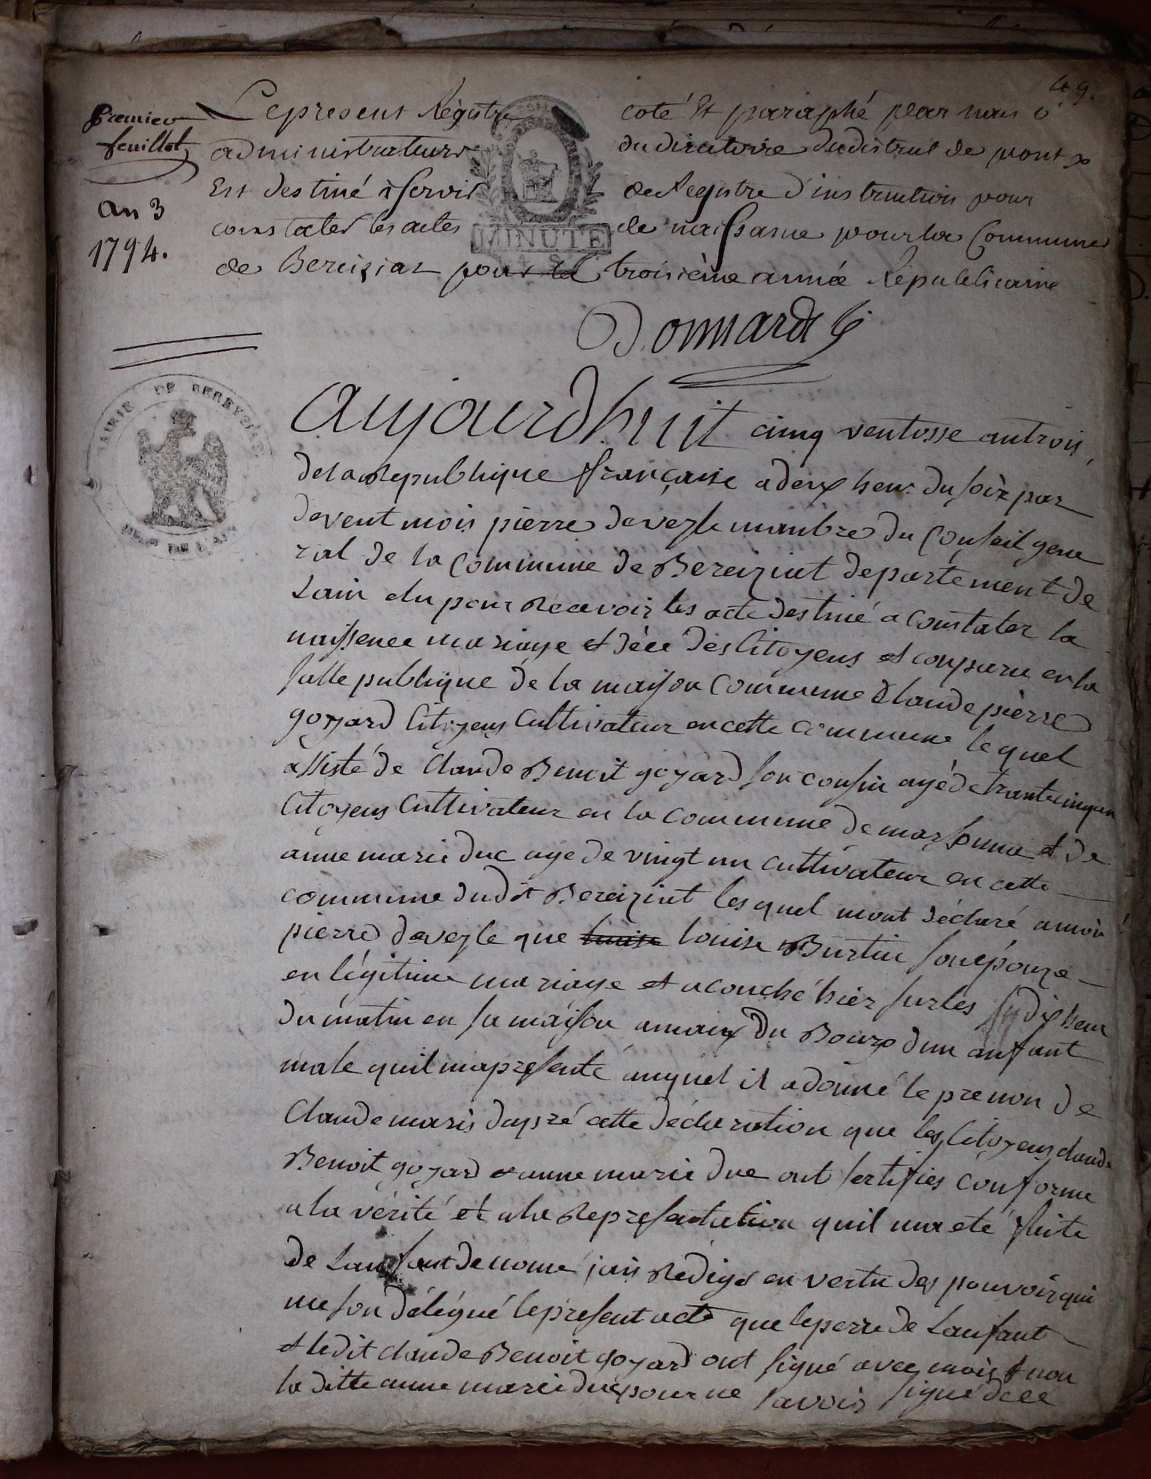 49.
premier feuillet
an 3
1794.
Le present Régistre coté Et paraphé par nous
administrateurs du directoire du district de pont
Est destiné à servir de Registre d'instruction pour
constater les actes de naissance pour la Commune
MINUTE
de Bereiziat pour la troisième année Républicaine
MAIRIE DE BEREYZIAT
aujourdhuit cinq ventosse an trois
de la Republique française a deux heur du soir par
devent mois pierre deveyle mambre du Conseil gene
ral de la Commune de Bereiziat departement de
Lain elu pour Recevoir les acte destiné a constater la
naissence mariage et décé des Citoyens et conparu en la
salle publique de la maison Commune Claude pierre
goyard Citoyens Cultivateur en cette commune lequel
assisté de Claude Benoit goyard son cousin agé de trante cinq an
Citoyens Cultivateur en la Commune de marsonna et de
anne marie duc age de vingt un cultivateur en cette
commune dudit Bereiziat les quel mont déclaré a moi
pierre deveyle que louise Burtin son épouze
en légitime mariage et acouché hier sur les dix heur
du matin en sa maison du Bourg dun anfant
male quil ma présenté auquel il a donné le prenon de
Claude marie dapré cette déclaration que les Citoyens claude
Benoit goyard et anne marie duc ont sertifiés conforme
a la vérité et a la Représentation quil ma eté faite
de Lanfant denomé jais Rédigé en vertu des pouvoir qui
me son délégué le présent acte que le perre de Lanfant
et ledit claude Benoit goyard ont signé avec mois et non
la ditte anne marie duc pour ne savoir signé